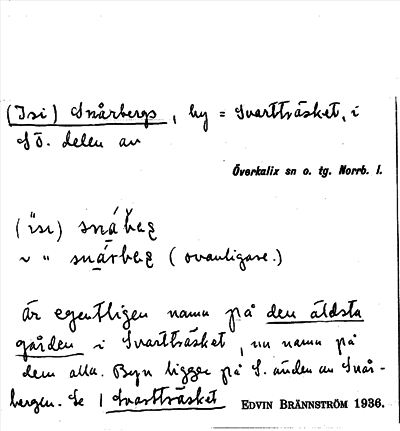 (Isi) Snårbergs, by = Svartträsket, i
SÖ. delen av
Överkalix sn o. tg. Norrb. l.
(ovanligare.)
Är egentligen namn på den äldsta
gården i Svartträsket, nu namn på
dem alla. Byn ligger på S. änden av Snår-
bergen. Se | Svartträsket
EDVIN BRÄNNSTRÖM 1936.